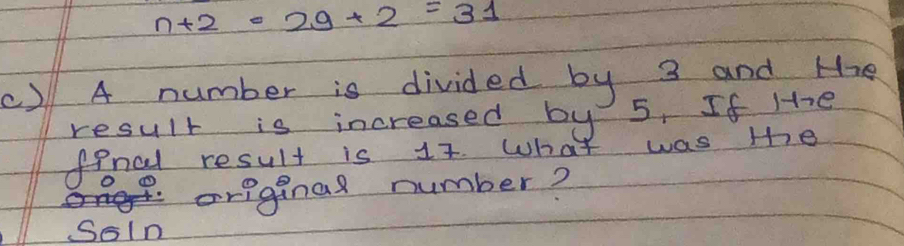 n+2 = 29 + 2 = 31
c) A number is divided by 3 and the
result is increased by 5, If the
final result is 17. What was the
original number?
Soln